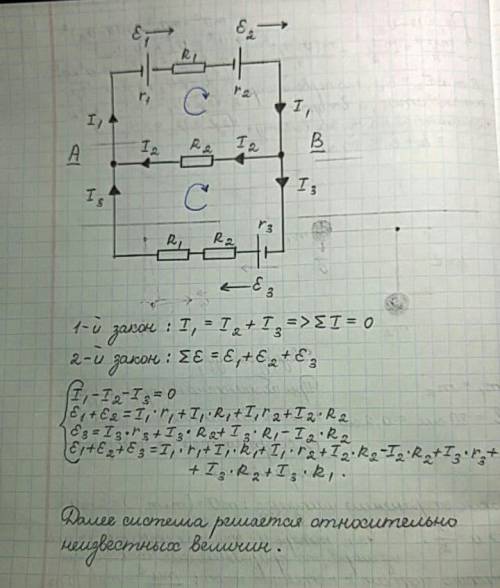 ε₁ → ε₂ →
R₁
r₁ r₂
I₁ I₁
A I₂ R₂ I₂ B
I₃ I₃
R₁ R₂ r₃
← ε₃
1-й закон : I₁ = I₂ + I₃ => ΣI = 0
2-й закон : Σε = ε₁ + ε₂ + ε₃
I₁ - I₂ - I₃ = 0
ε₁ + ε₂ = I₁·r₁ + I₁·R₁ + I₁r₂ + I₂·R₂
ε₃ = I₃·r₃ + I₃·R₂ + I₃·R₁ - I₂·R₂
ε₁ + ε₂ + ε₃ = I₁·r₁ + I₁·R₁ + I₁·r₂ + I₂·R₂ - I₂·R₂ + I₃·r₃ +
+ I₃·R₂ + I₃·R₁.
Далее система решается относительно
неизвестных величин.